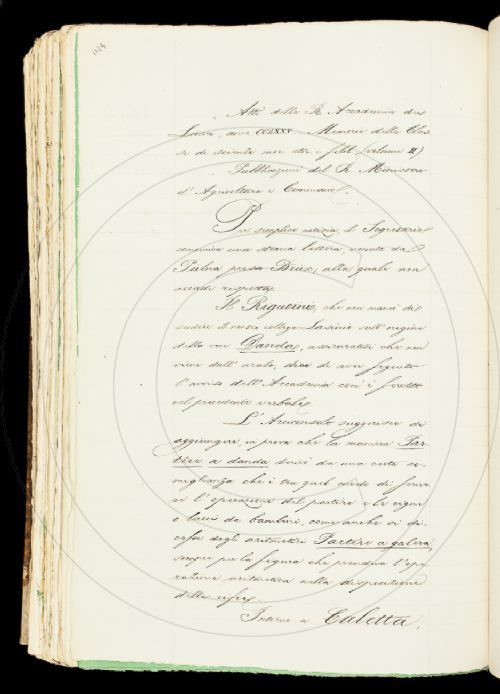 1084
Atti della R. Accademia dei
Lincei, anno CCLXXV. Memorie della Clas-
se di scienze mor. stor. e filol. (volume II)
Pubblicazioni del R. Ministero
d'Agricoltura e Commercio.
Per semplice notizia, il Segretario
comunica una strana lettera, venuta da
Pulna presso Brüx, alla quale non
accade risposta.
Il Rigutini, che non mancò di
sentire il nostro collega Lasinio sull'origine
della voce Danda, assicuratosi che non
viene dall'arabo, dice di aver seguito
l'avviso dell'Accademia com'è scritto
nel precedente verbale.
L'Arciconsolo suggerisce di
aggiungere, in prova che la maniera Par-
tire a danda derivi da una certa so-
miglianza che è tra quel modo di far-
si l'operazione del partire e le cigne
o lacci da bambini, come anche si di-
cesse dagli aritmetici Partire a galera,
sempre per la figura che prendeva l'ope-
razione aritmetica nella disposizione
delle cifre.
Intorno a Caletta,